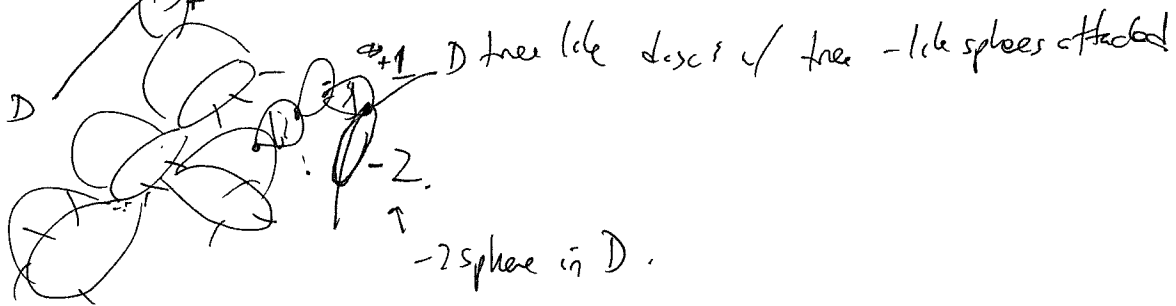 +1 D tree like discs w/ tree-like spheres attached
D
-2.
-2 sphere in D.